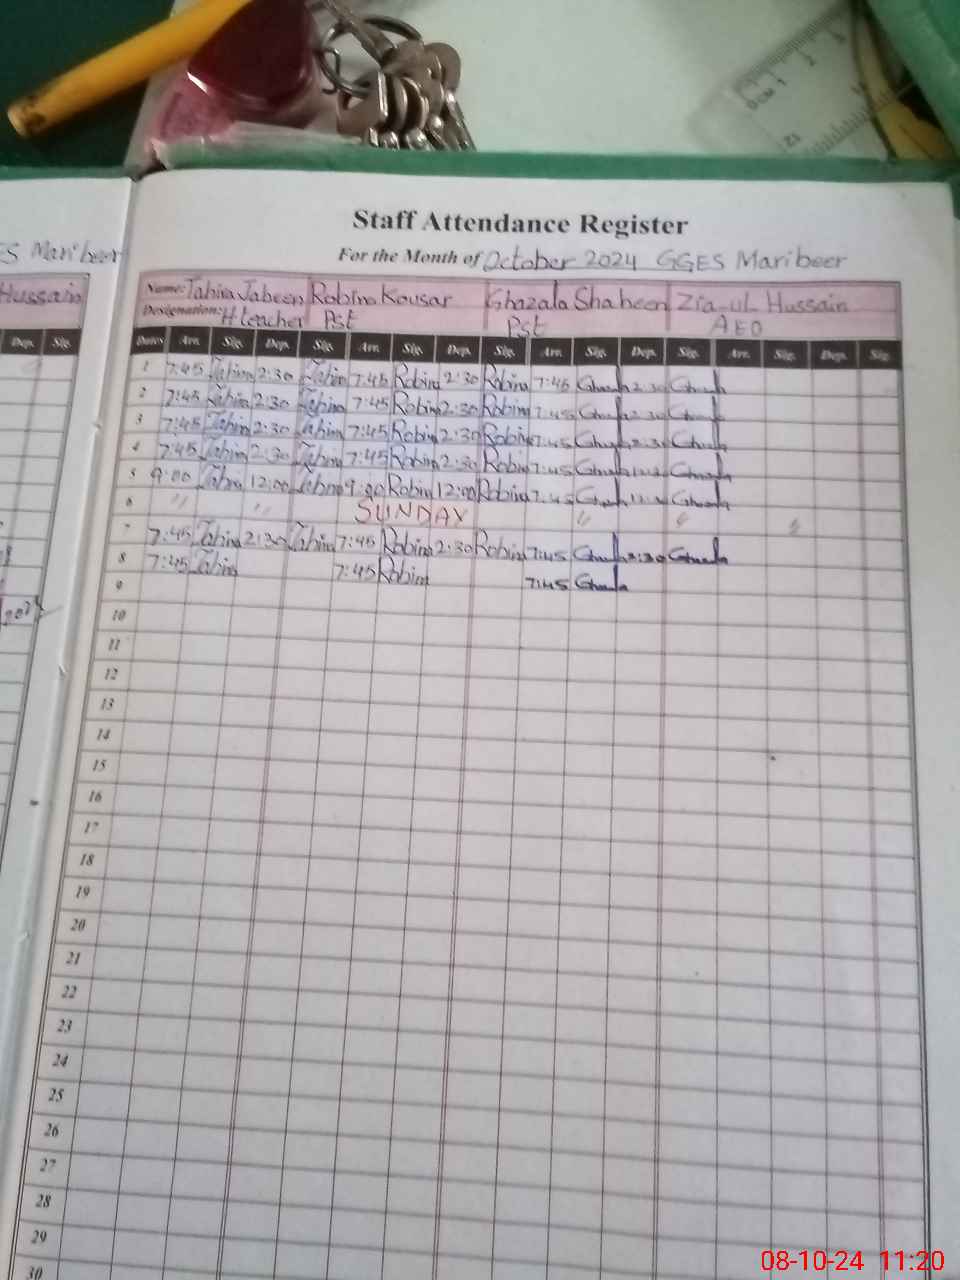 Staff Attendance Register
For the Month of October 2024 GGES Maribeer
ES Maribeer
Hussain
Name: Tahira Jabeen Robina Kousar Ghazala Shaheen Zia-ul-Hussain
Designation: H teacher Pst Pst AEO
Dep. Sig.
Dates Arr. Sig. Dep. Sig. Arr. Sig. Dep. Sig. Arr. Sig. Dep. Sig. Arr. Sig. Dep. Sig.
1 7:45 Tahira 2:30 Tahira 7:45 Robina 2:30 Robina 7:45 2:30
2 7:45 Tahira 2:30 Tahira 7:45 Robina 2:30 Robina 7:45 2:30
3 7:45 Tahira 2:30 Tahira 7:45 Robina 2:30 Robina 7:45 2:30
4 7:45 Tahira 2:30 Tahira 7:45 Robina 2:30 Robina 7:45
5 9:00 Tahira 12:00 Tahira 9:00 Robina 12:00 Robina 7:45
6 " " SUNDAY " " "
7 7:45 Tahira 2:30 Tahira 7:45 Robina 2:30 Robina 7:45 2:30
8 7:45 Tahira 7:45 Robina 7:45
9
10
11
12
13
14
15
16
17
18
19
20
21
22
23
24
25
26
27
28
29
30
08-10-24 11:20